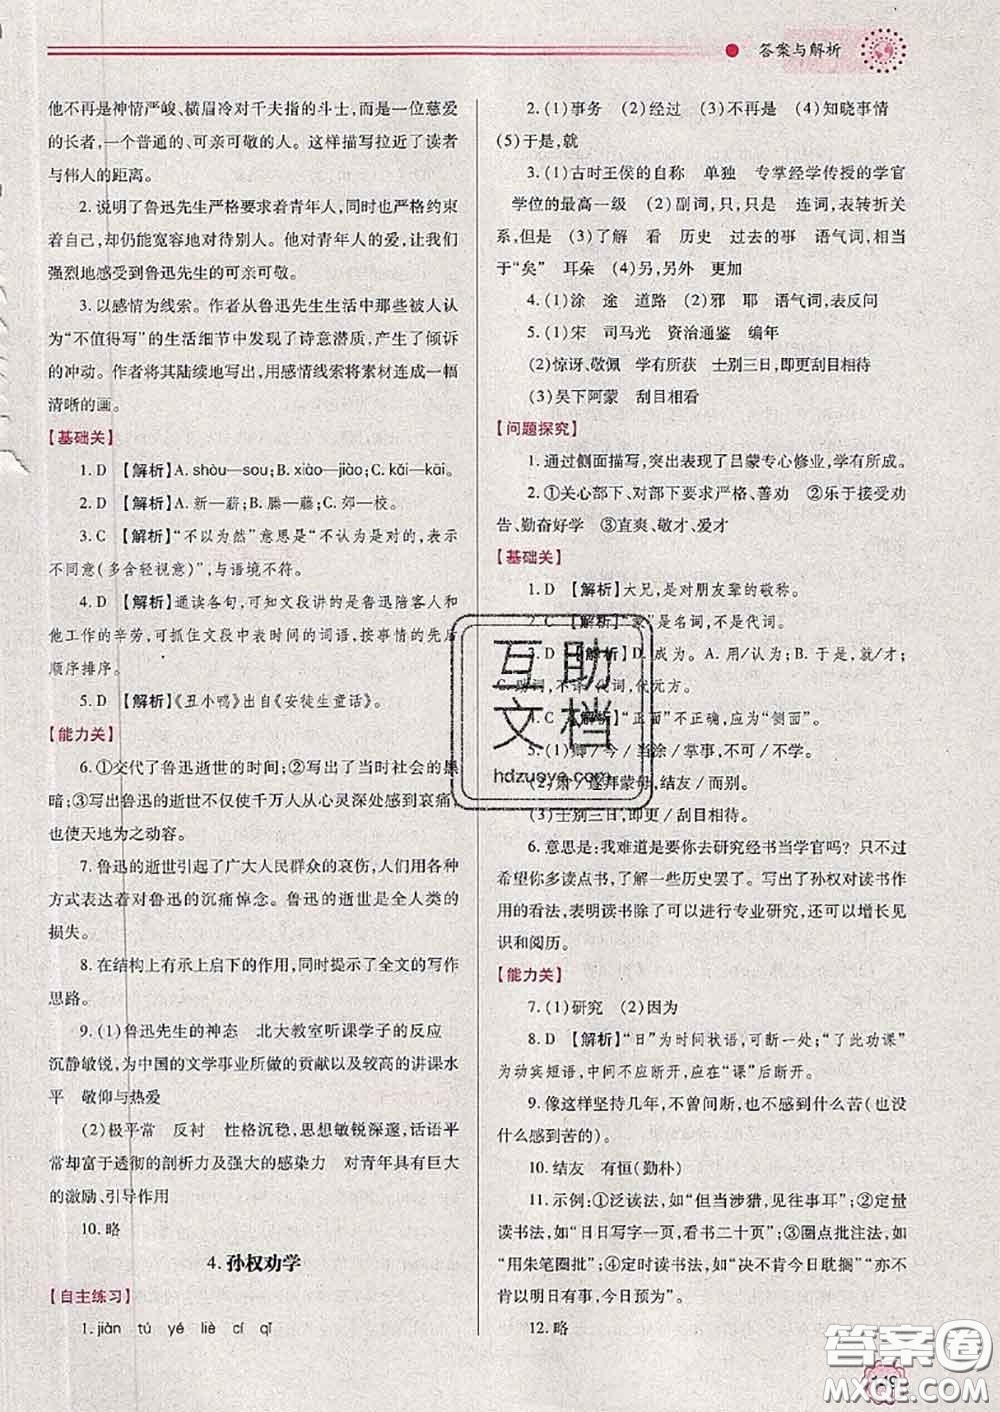 答案与解析
他不再是神情严峻、横眉冷对千夫指的斗士,而是一位慈爱
的长者,一个普通的、可亲可敬的人。这样描写拉近了读者
与伟人的距离。
2. 说明了鲁迅先生严格要求着青年人,同时也严格约束
着自己,却仍能宽容地对待别人。他对青年人的爱,让我们
强烈地感受到鲁迅先生的可亲可敬。
3. 以感情为线索。作者从鲁迅先生生活中那些被人认
为“不值得写”的生活细节中发现了诗意潜质,产生了倾诉
的冲动。作者将其陆续地写出,用感情线索将素材连成一幅
清晰的画。
【基础关】
1. D 【解析】A. shòu—sou;B. xiào—jiào;C. kāi—kāi。
2. D 【解析】A. 新—薪;B. 滕—藤;C. 郊—校。
3. C 【解析】“不以为然”意思是“不认为是对的,表示
不同意(多含轻视意)”,与语境不符。
4. D 【解析】通读各句,可知文段讲的是鲁迅陪客人和
他工作的辛劳,可抓住文段中表时间的词语,按事情的先后
顺序排序。
5. D 【解析】《丑小鸭》出自《安徒生童话》。
【能力关】
6. ①交代了鲁迅逝世的时间;②写出了当时社会的黑
暗;③表达出鲁迅的逝世不仅使千万人从心灵深处感到哀痛,
也使天地为之动容。
7. 鲁迅的逝世引起了广大人民群众的哀伤,人们用各种
方式表达着对鲁迅的沉痛悼念。鲁迅的逝世是全人类的
损失。
8. 在结构上有承上启下的作用,同时提示了全文的写作
思路。
9. (1)鲁迅先生的神态 北大教室听课学子的反应
沉静敏锐,为中国的文学事业所做的贡献以及较高的讲课水
平 敬仰与热爱
(2)极平常 反衬 性格沉稳,思想敏锐深邃,话语平
常却富于透彻的剖析力及强大的感染力 对青年具有巨大
的激励、引导作用
10. 略
4. 孙权劝学
【自主练习】
1. jiàn tú yé liè cí qǐ
2. (1)事务 (2)经过 (3)不再是 (4)知晓事情
(5)于是,就
3. (1)古时王侯的自称 单独 专掌经学传授的学官
学位的最高一级 (2)副词,只,只是 连词,表转折关
系,但是 (3)了解 看 历史 过去的事 语气词,相当
于“矣” 耳朵 (4)另,另外 更加
4. (1)涂 途 道路 (2)邪 耶 语气词,表反问
5. (1)宋 司马光 资治通鉴 编年
(2)惊讶、敬佩 学有所获 士别三日,即更刮目相待
(3)吴下阿蒙 刮目相看
【问题探究】
1. 通过侧面描写,突出表现了吕蒙专心修业,学有所成。
2. ①关心部下、对部下要求严格、善劝 ②乐于接受劝
告、勤奋好学 ③直爽、敬才、爱才
【基础关】
1. D 【解析】大兄,是对朋友辈的敬称。
2. C 【解析】“蒙”是名词,不是代词。
3. D 【解析】D. 成为。A. 用/认为;B. 于是,就/无;
C. 助词,不译/代词,代元方。
4. C 【解析】“正面”不正确,应为“侧面”。
5. (1)卿/今/当涂/掌事,不可/不学。
(2)肃/遂拜蒙母,结友/而别。
(3)士别三日,即更/刮目相待。
6. 意思是:我难道是要你去研究经书当学官吗? 只不过
希望你多读点书,了解一些历史罢了。写出了孙权对读书作
用的看法,表明读书除了可以进行专业研究,还可以增长见
识和阅历。
【能力关】
7. (1)研究 (2)因为
8. D 【解析】“日”为时间状语,可断一处;“了此功课”
为动宾短语,中间不应断开,应在“课”后断开。
9. 像这样坚持几年,不曾间断,也不感到什么苦(也没
什么感到苦的)。
10. 结友 有恒(勤朴)
11. 示例:①泛读法,如“但当涉猎,见往事耳”;②定量
读书法,如“日日写字一页,看书二十页”;③圈点批注法,如
“用朱笔圈批”;④定时读书法,如“决不肯今日耽搁”“亦不
肯以明日有事,今日预为”。
12. 略
互助文档
hdzuoye.com
答案圈
MXQE.COM
149